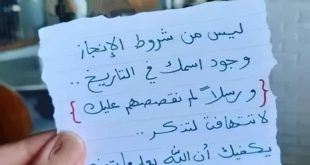 ليس من شروط الإنجاز
وجود اسمك في التاريخ ..
{ ورسلاً لم نقصصهم عليك }
لا تتهافت لتذكر ..
يكفيك أن الله